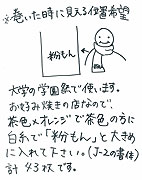 ※巻いた時に見える位置希望
粉もん
大学の学園祭で使います。
お好み焼きの店なので、
茶色×オレンジで茶色の方に
白糸で「粉もん」と大きめ
に入れて下さい。(J-2の書体)
計43枚です。